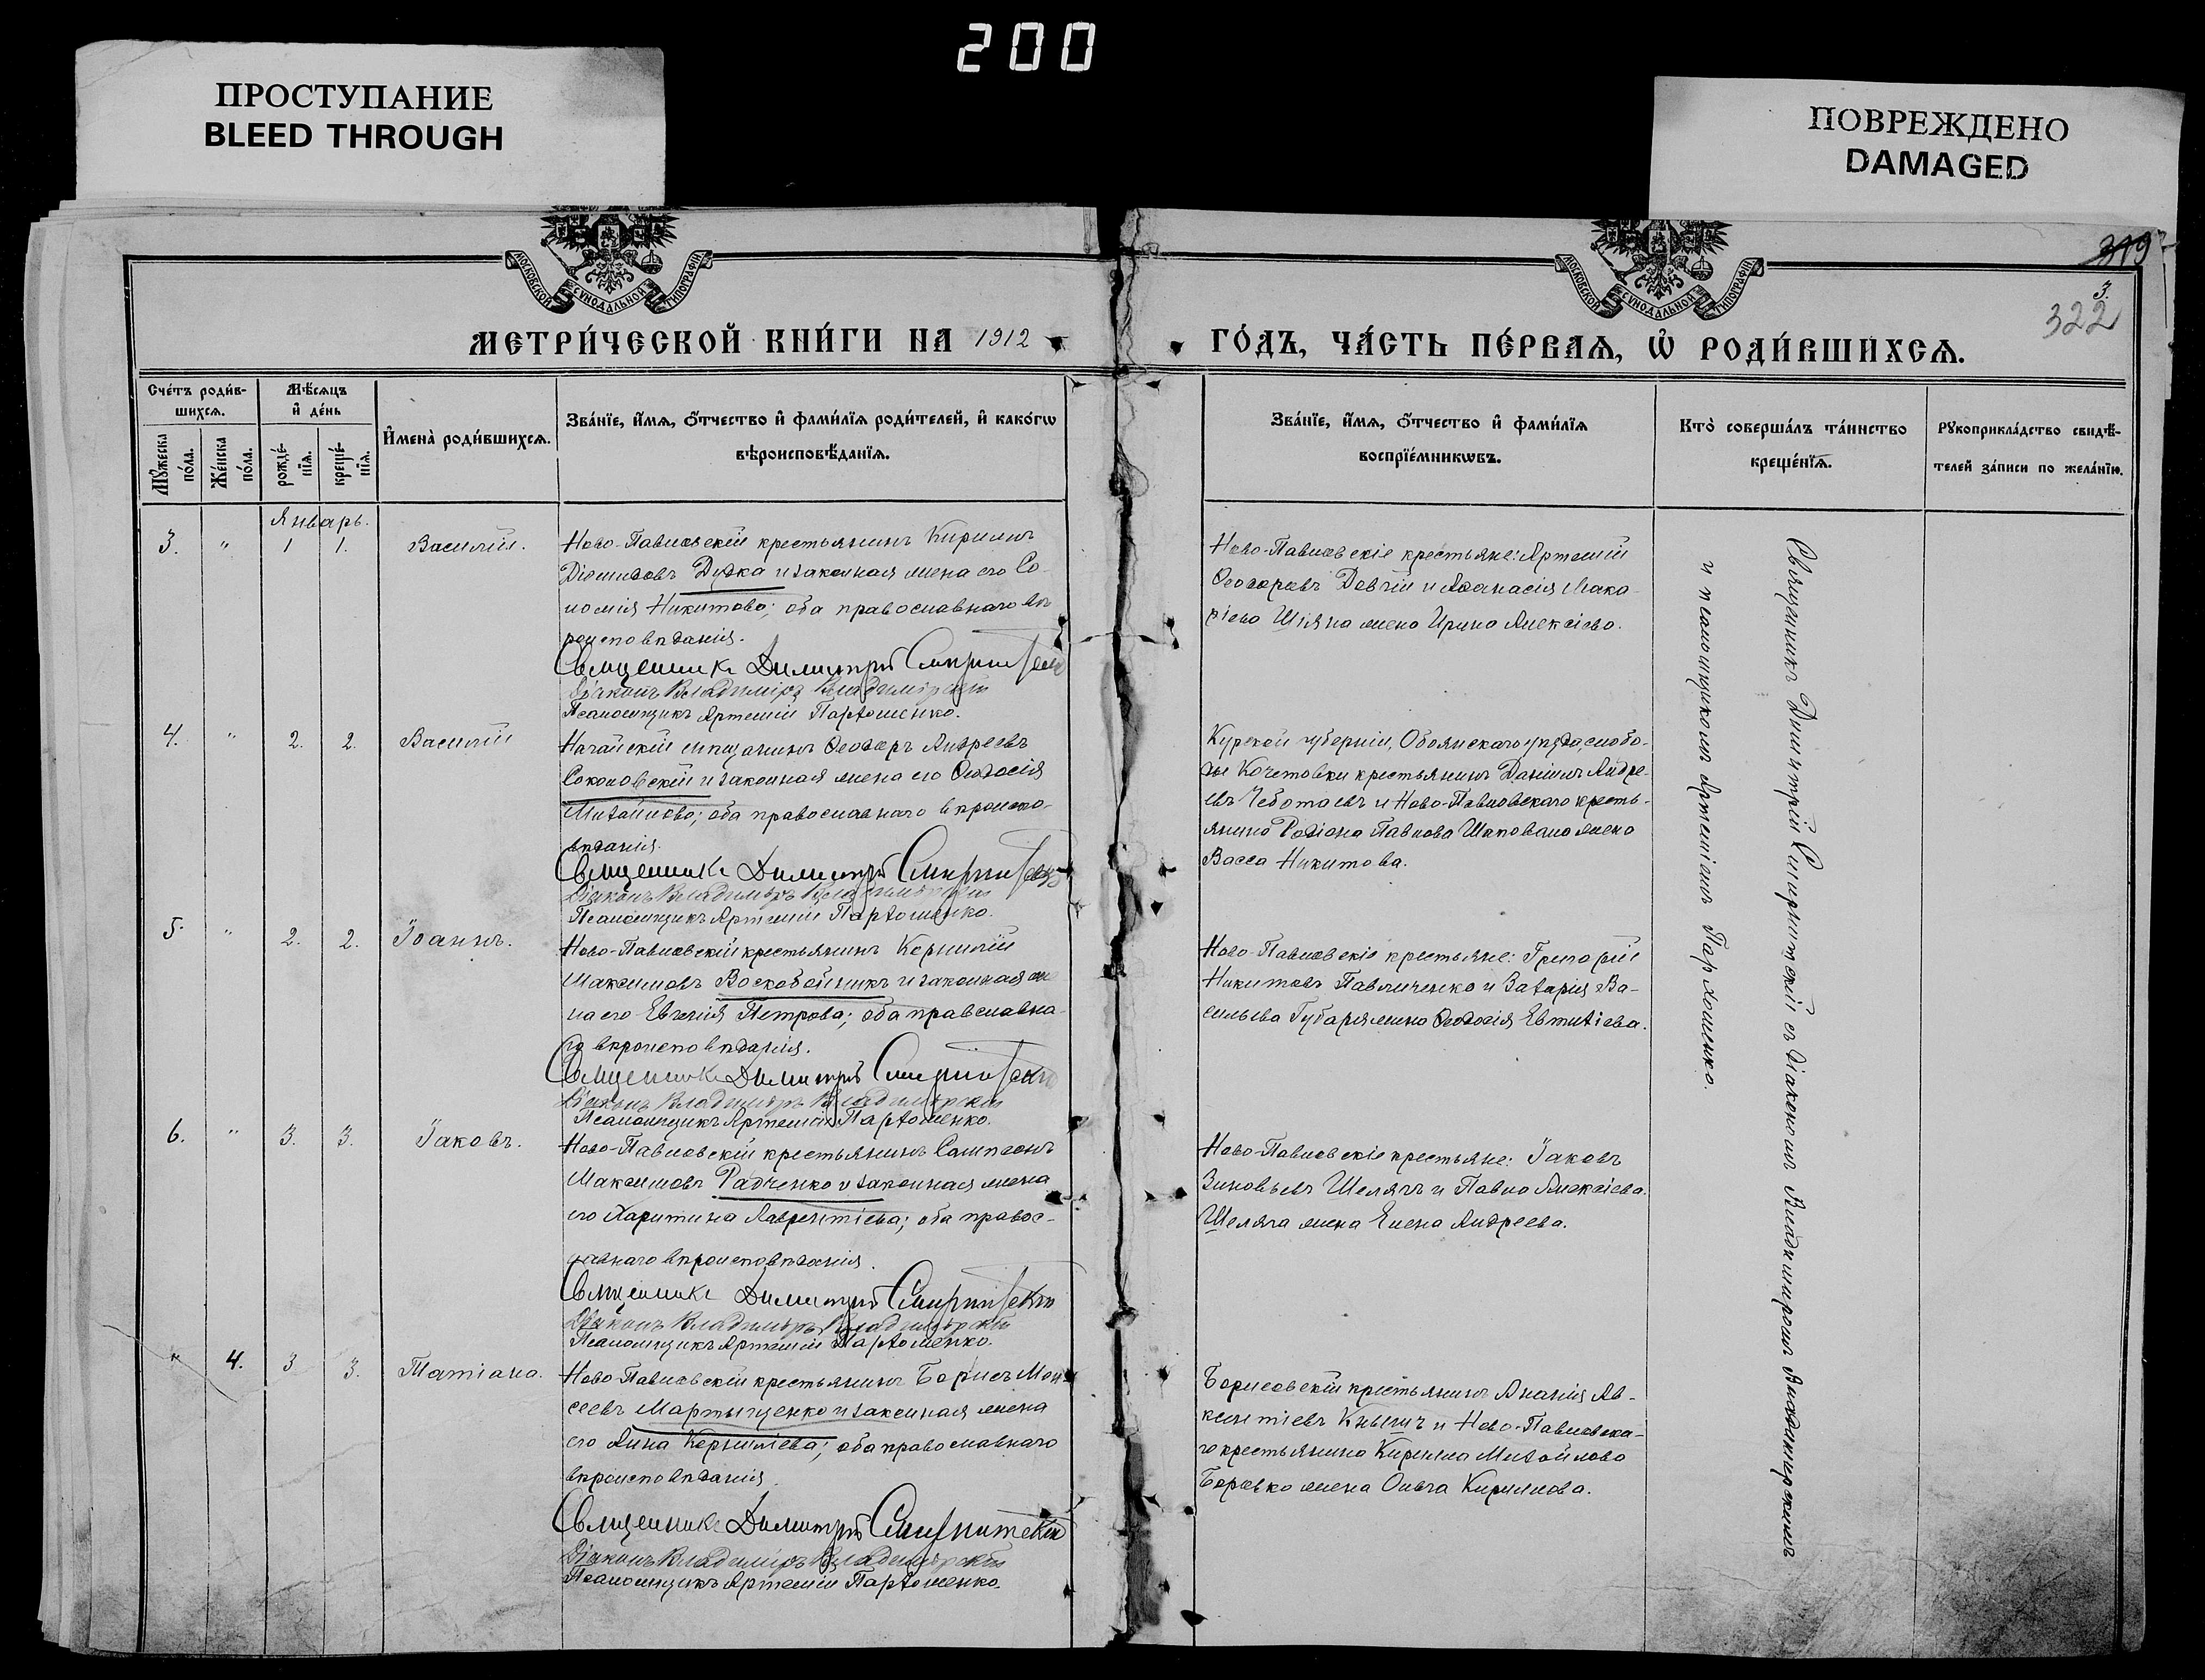 200
ПРОСТУПАНИЕ
BLEED THROUGH
ПОВРЕЖДЕНО
DAMAGED
МОСКОВСКОЙ СѴНОДАЛЬНОЙ ТИПОГРАФІИ
МОСКОВСКОЙ СѴНОДАЛЬНОЙ ТИПОГРАФІИ
319
3.
322
МЕТРИ́ЧЕСКОЙ КНИ́ГИ НА 1912
ГО́ДЪ, ЧА́СТЬ ПЕ́РВАѦ, Ѡ҆ РОДИ́ВШИХСѦ.
Сче́тъ роди́в-
шихсѧ.
Мꙋ́жеска
по́ла.
Же́нска
по́ла.
Мѣ́сѧцъ
и҆ де́нь
рожде́-
нїѧ.
креще́-
нїѧ.
И҆мена̀ роди́вшихсѧ.
Зва́нїе, и҆́мѧ, ѻ҆́тчество и҆ фами́лїѧ роди́телей, и҆ како́гѡ
вѣроисповѣ́данїѧ.
Зва́нїе, и҆́мѧ, ѻ҆́тчество и҆ фами́лїѧ
воспрїе́мникѡвъ.
Кто̀ соверша́лъ та́инство
креще́нїѧ.
Рꙋкоприкла́дство свидѣ́-
телей за́писи по жела́нїю.
Январь.
3. " 1 1. Василій.
Ново-Павловскій крестьянинъ Кириллъ
Діомидовъ Дудка и законная жена его Со-
ломія Никитова; оба православнаго вѣ-
роисповѣданія.
Священникъ Димитрій
Діаконъ Владиміръ Владимірскій
Псаломщикъ Артемій Пархоменко.
Ново-Павловскіе крестьяне: Артемій
Ѳеодоровъ Довгій и Аѳанасія Мака-
ріева жена Ирина Алексіева.
4. " 2. 2. Василій
Ногайскій мѣщанинъ Ѳеодоръ Андреевъ
Соколовскій и законная жена его Ѳеодосія
Михайлова; оба православнаго вѣроиспо-
вѣданія.
Священникъ Димитрій
Діаконъ Владиміръ Владимірскій
Псаломщикъ Артемій Пархоменко.
Курской губерніи, Обоянскаго уѣзда, слобо-
ды Кочетовки крестьянинъ Даніилъ Андре-
евъ Чеботаевъ и Ново-Павловскаго кресть-
янина Родіона Павлова жена
Васса Никитова.
5. " 2. 2. Іоаннъ.
Ново-Павловскій крестьянинъ Корнилій
Максимовъ Воскобойникъ и законная же
на его Евгенія Петрова; оба православна-
го вѣроисповѣданія.
Священникъ Димитрій
Діаконъ Владиміръ Владимірскій
Псаломщикъ Артемій Пархоменко.
Ново-Павловскіе крестьяне: Григорій
Никитовъ Павличенко и Захарія Ва-
сильева Губаря жена Ѳеодосія Евтихіева.
6. " 3. 3. Іаковъ.
Ново-Павловскій крестьянинъ Сампсонъ
Максимовъ Радченко и законная жена
его Харитина Лаврентіева; оба правос-
лавнаго вѣроисповѣданія.
Священникъ Димитрій
Діаконъ Владиміръ Владимірскій
Псаломщикъ Артемій Пархоменко.
Ново-Павловскіе крестьяне: Іаковъ
Зиновьевъ Шелягъ и Павла Алексіева
Шеляга жена Елена Андреева.
" 4. 3 3. Татіана.
Ново-Павловскій крестьянинъ Борисъ Мои
сеевъ Мартыщенко и законная жена
его Анна Корниліева; оба православнаго
вѣроисповѣданія.
Священникъ Димитрій
Діаконъ Владиміръ Владимірскій
Псаломщикъ Артемій Пархоменко.
Борисовскій крестьянинъ Ананія Ав-
ксентіевъ Кнышъ и Ново-Павловска-
го крестьянина Кирилла Михайлова
Боровко жена Ольга Кириллова.
Священникъ Димитрій съ діакономъ Владимиромъ Владимирскимъ
и псаломщикомъ Артеміемъ Пархоменко.